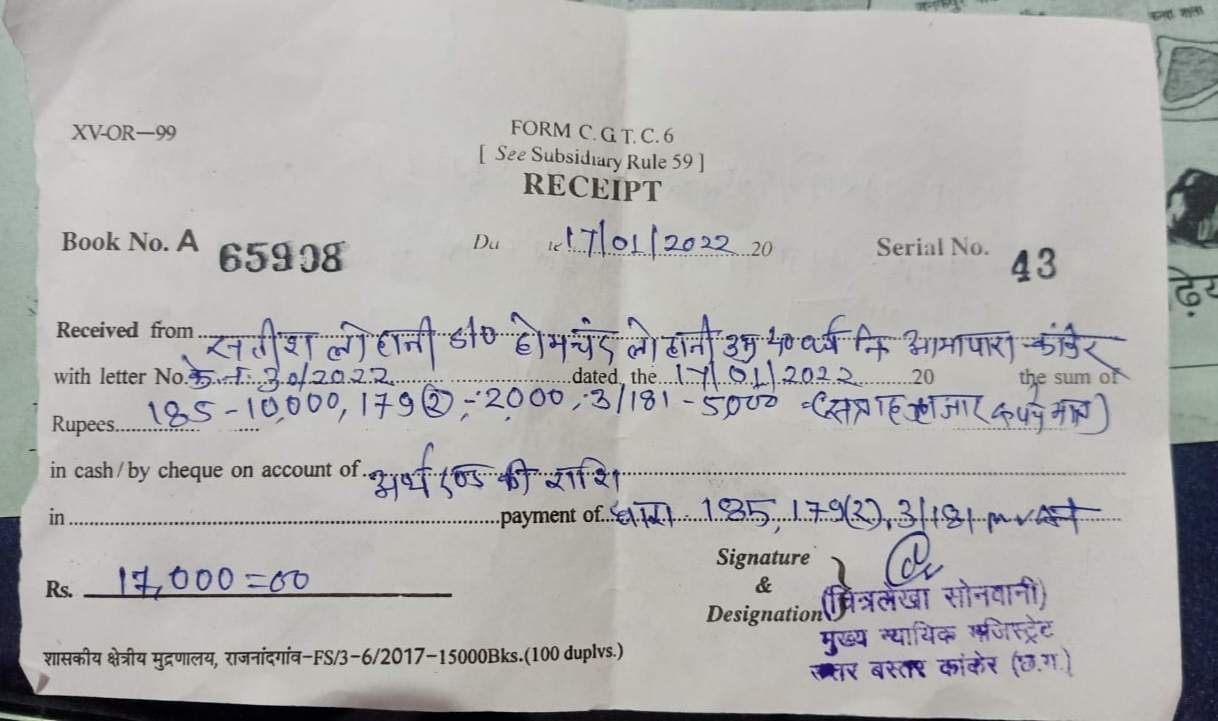 XV-OR—99
FORM C. G. T. C. 6
[ See Subsidiary Rule 59 ]
RECEIPT
Book No. A 65908 17/01/2022 20 Serial No. 43
Received from सतीश लोहानी S/o होमचंद लोहानी उम्र 40 वर्ष नि आमापारा कांकेर
with letter No. 30/2022 dated, the 17/01/2022 20 the sum of
Rupees 185 - 10,000, 179(2) - 2000, 3/181 - 5,000 = (सत्रह हजार रूपये मात्र)
in cash/by cheque on account of अर्थदण्ड की राशि
in payment of धारा 185, 179(2), 3/181 mv
Signature
&
Designation
Rs. 17,000=00
(चित्रलेखा सोनवानी)
मुख्य न्यायिक मजिस्ट्रेट
उत्तर बस्तर कांकेर (छ.ग.)
शासकीय क्षेत्रीय मुद्रणालय, राजनांदगांव-FS/3-6/2017-15000Bks.(100 duplvs.)